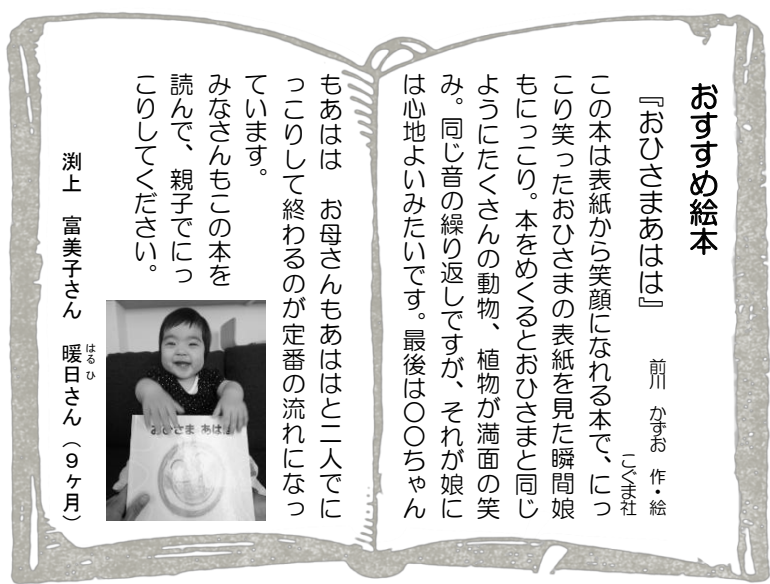 おすすめ絵本
『おひさまあはは』
前川　かずお　作・絵
こぐま社
この本は表紙から笑顔になれる本で、にっ
こり笑ったおひさまの表紙を見た瞬間娘
もにっこり。本をめくるとおひさまと同じ
ようにたくさんの動物、植物が満面の笑
み。同じ音の繰り返しですが、それが娘に
は心地よいみたいです。最後は〇〇ちゃん
もあはは　お母さんもあははと二人でに
っこりして終わるのが定番の流れになっ
ています。
みなさんもこの本を
読んで、親子でにっ
こりしてください。
おひさま あはは
渕上　富美子さん　暖日さん（９ヶ月）
はる ひ